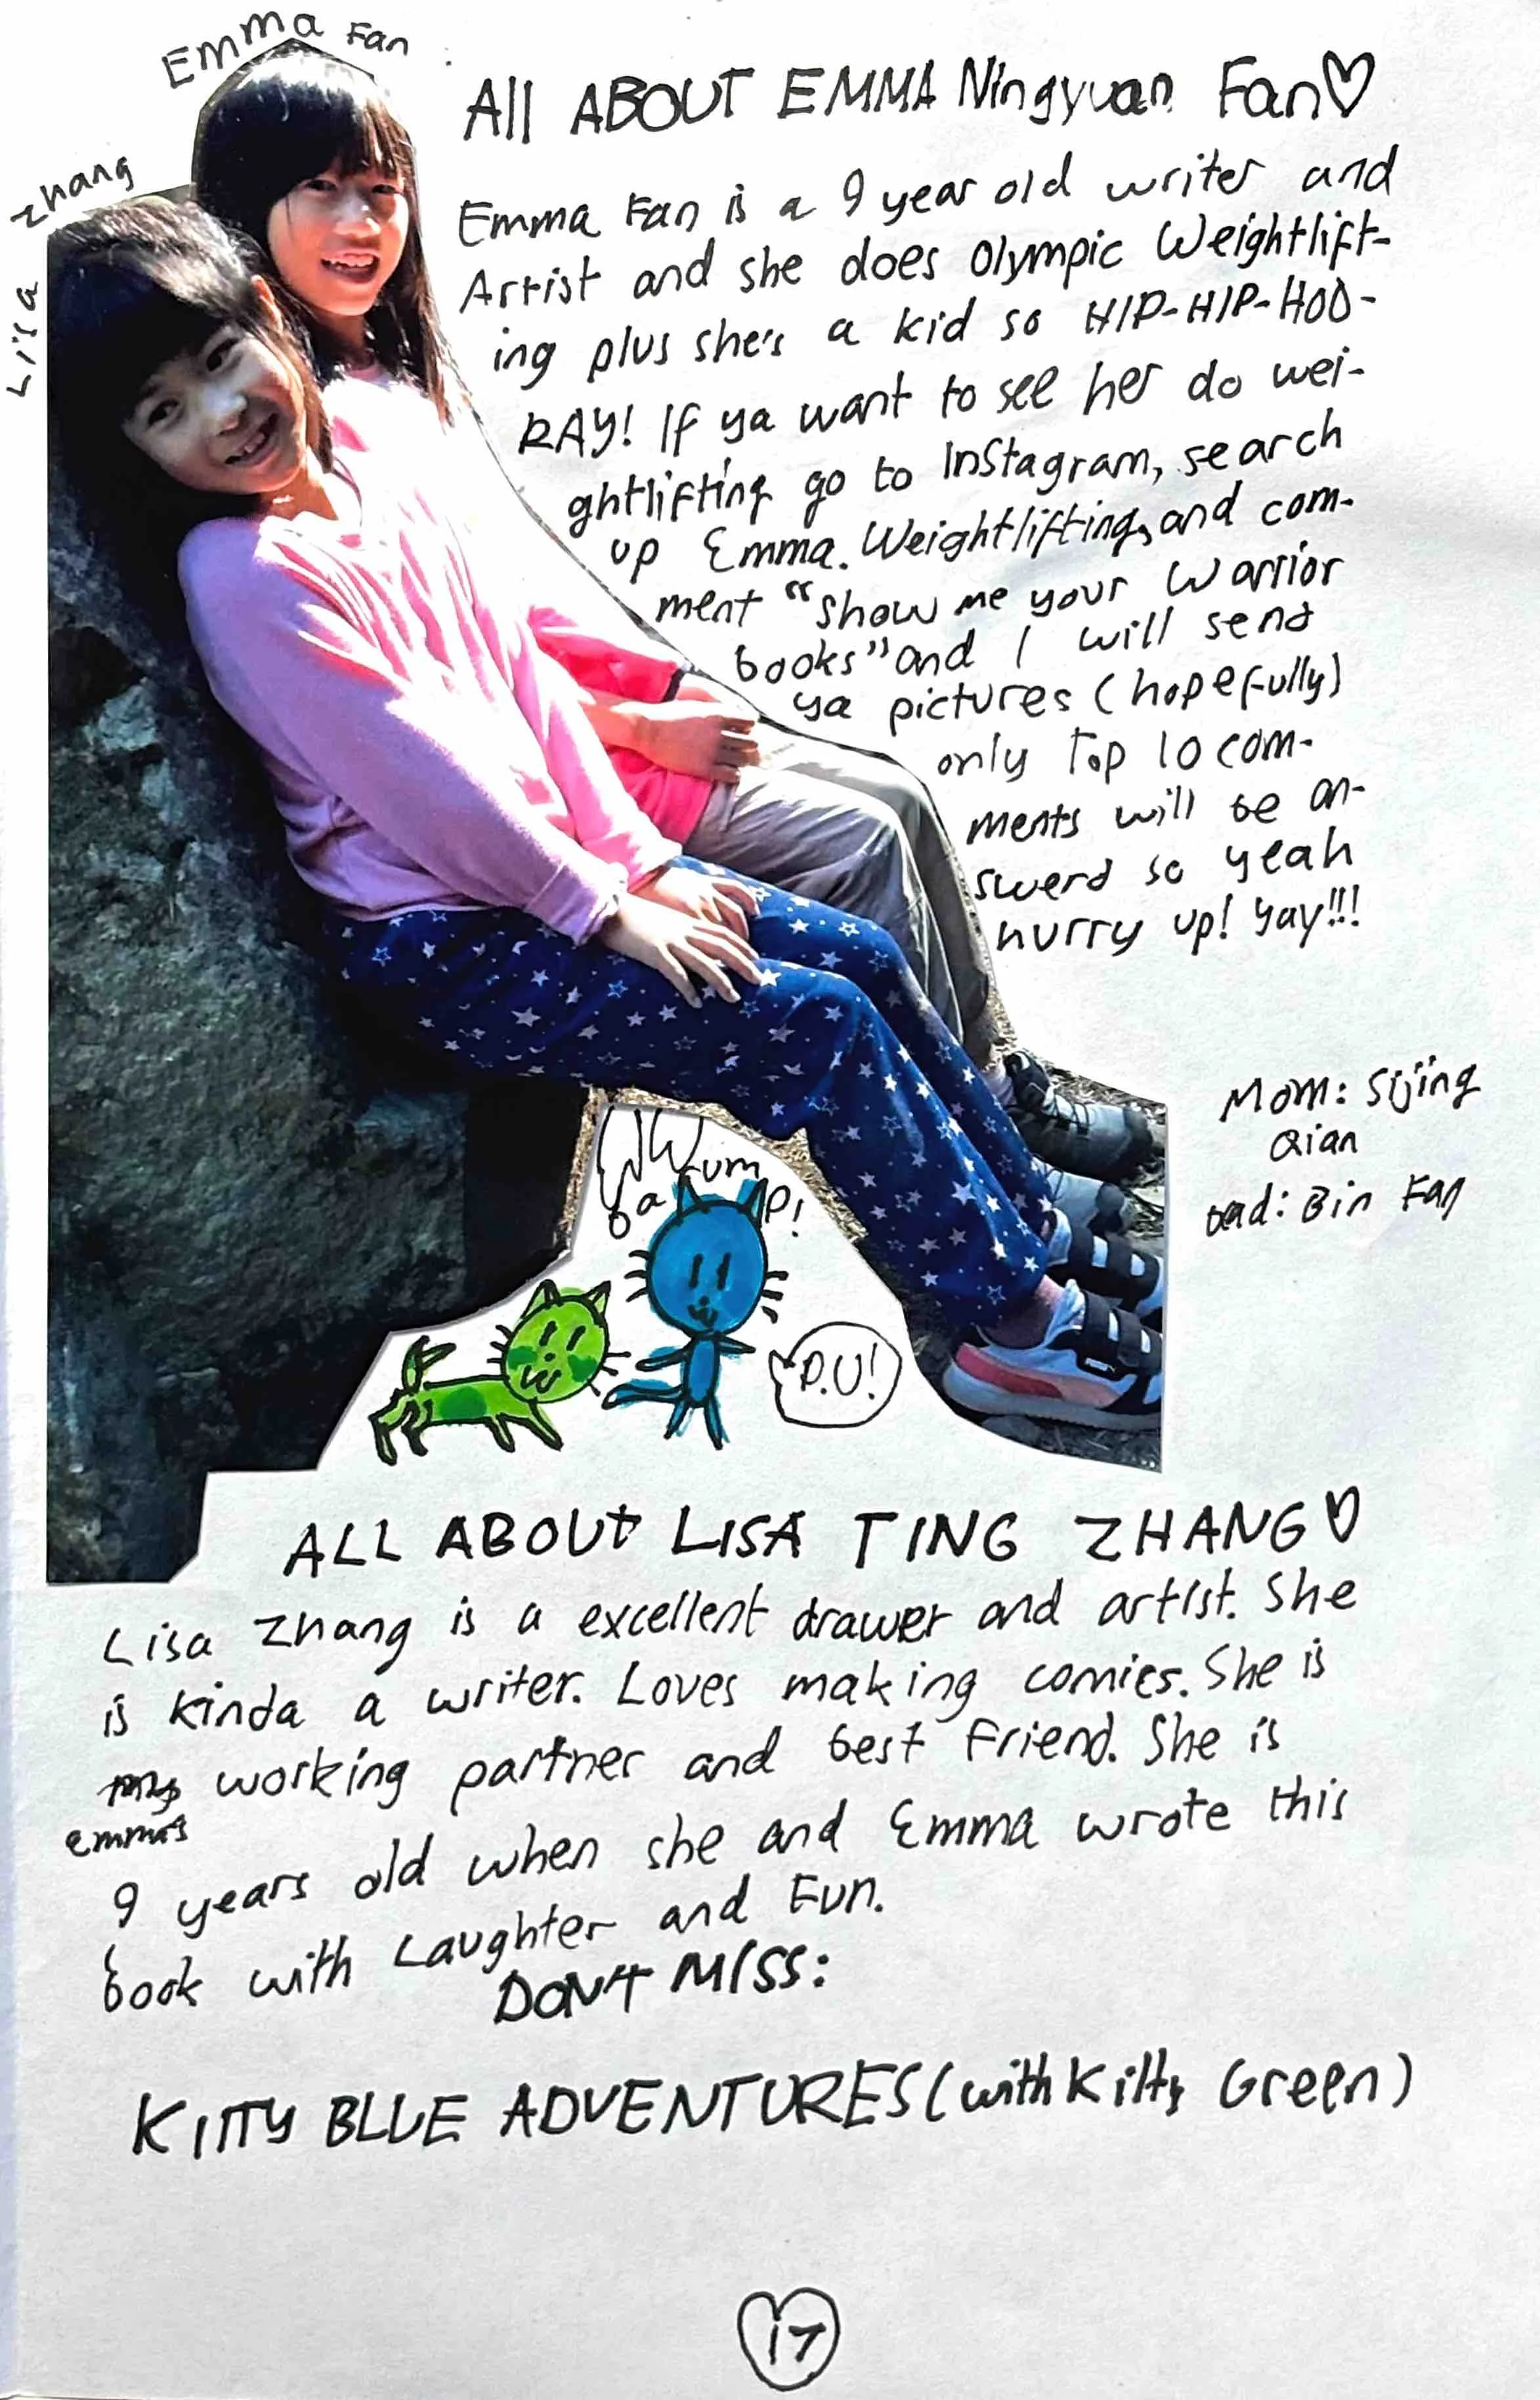 Emma Fan
Lisa Zhang
All ABOUT EMMA Ningyuan Fan♡
Emma Fan is a 9 year old writer and
Artist and she does Olympic Weightlift-
ing plus she's a kid so HIP-HIP-HOO-
RAY! If ya want to see her do wei-
ghtlifting go to Instagram, search
up Emma.Weightlifting, and com-
ment "show me your Warrior
books" and I will send
ya pictures (hopefully)
only Top 10 com-
ments will be an-
swerd so yeah
hurry up! Yay!!!
Mom: Sijing
Qian
Dad: Bin Fan
P.U!
ALL ABOUT LISA TING ZHANG♡
Lisa Zhang is a excellent drawer and artist. She
is kinda a writer. Loves making comics. She is
my working partner and best Friend. She is
emma's
9 years old when she and Emma wrote this
book with Laughter and Fun.
DON'T MISS:
KITTY BLUE ADVENTURES (with Kitty Green)
17